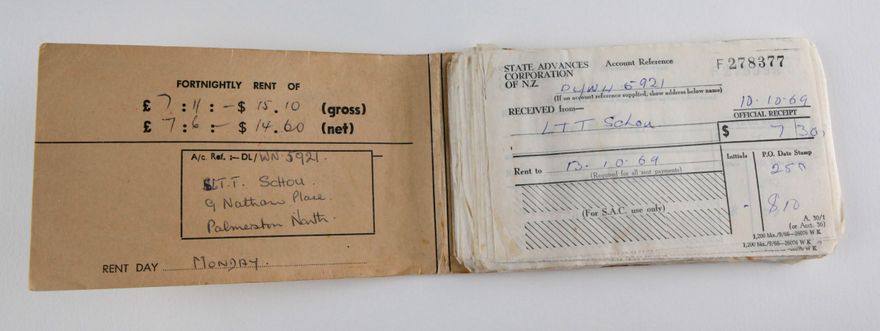 FORTNIGHTLY RENT OF
£ 7 : 11 : - $ 15.10 (gross)
£ 7 : 6 : - $ 14.60 (net)
A/c. Ref. :- DL/WN 5921.
T.T. SCHOU.
9 Nathan Place.
Palmerston North.
RENT DAY MONDAY.
STATE ADVANCES
CORPORATION
OF N.Z.
Account Reference
F 278377
DL/WN 5921
(If on account reference supplied, show address below name)
10.10.69
RECEIVED from—
OFFICIAL RECEIPT
T T Schou
$ 7 30
Rent to 13.10.69
(Required for all rent payments)
Initials
P.O. Date Stamp
(For S.A.C. use only)
8.10
A. 30/1
1,200 bks./9/66—26076 W K
1,200 bks./9/66—26076 W K